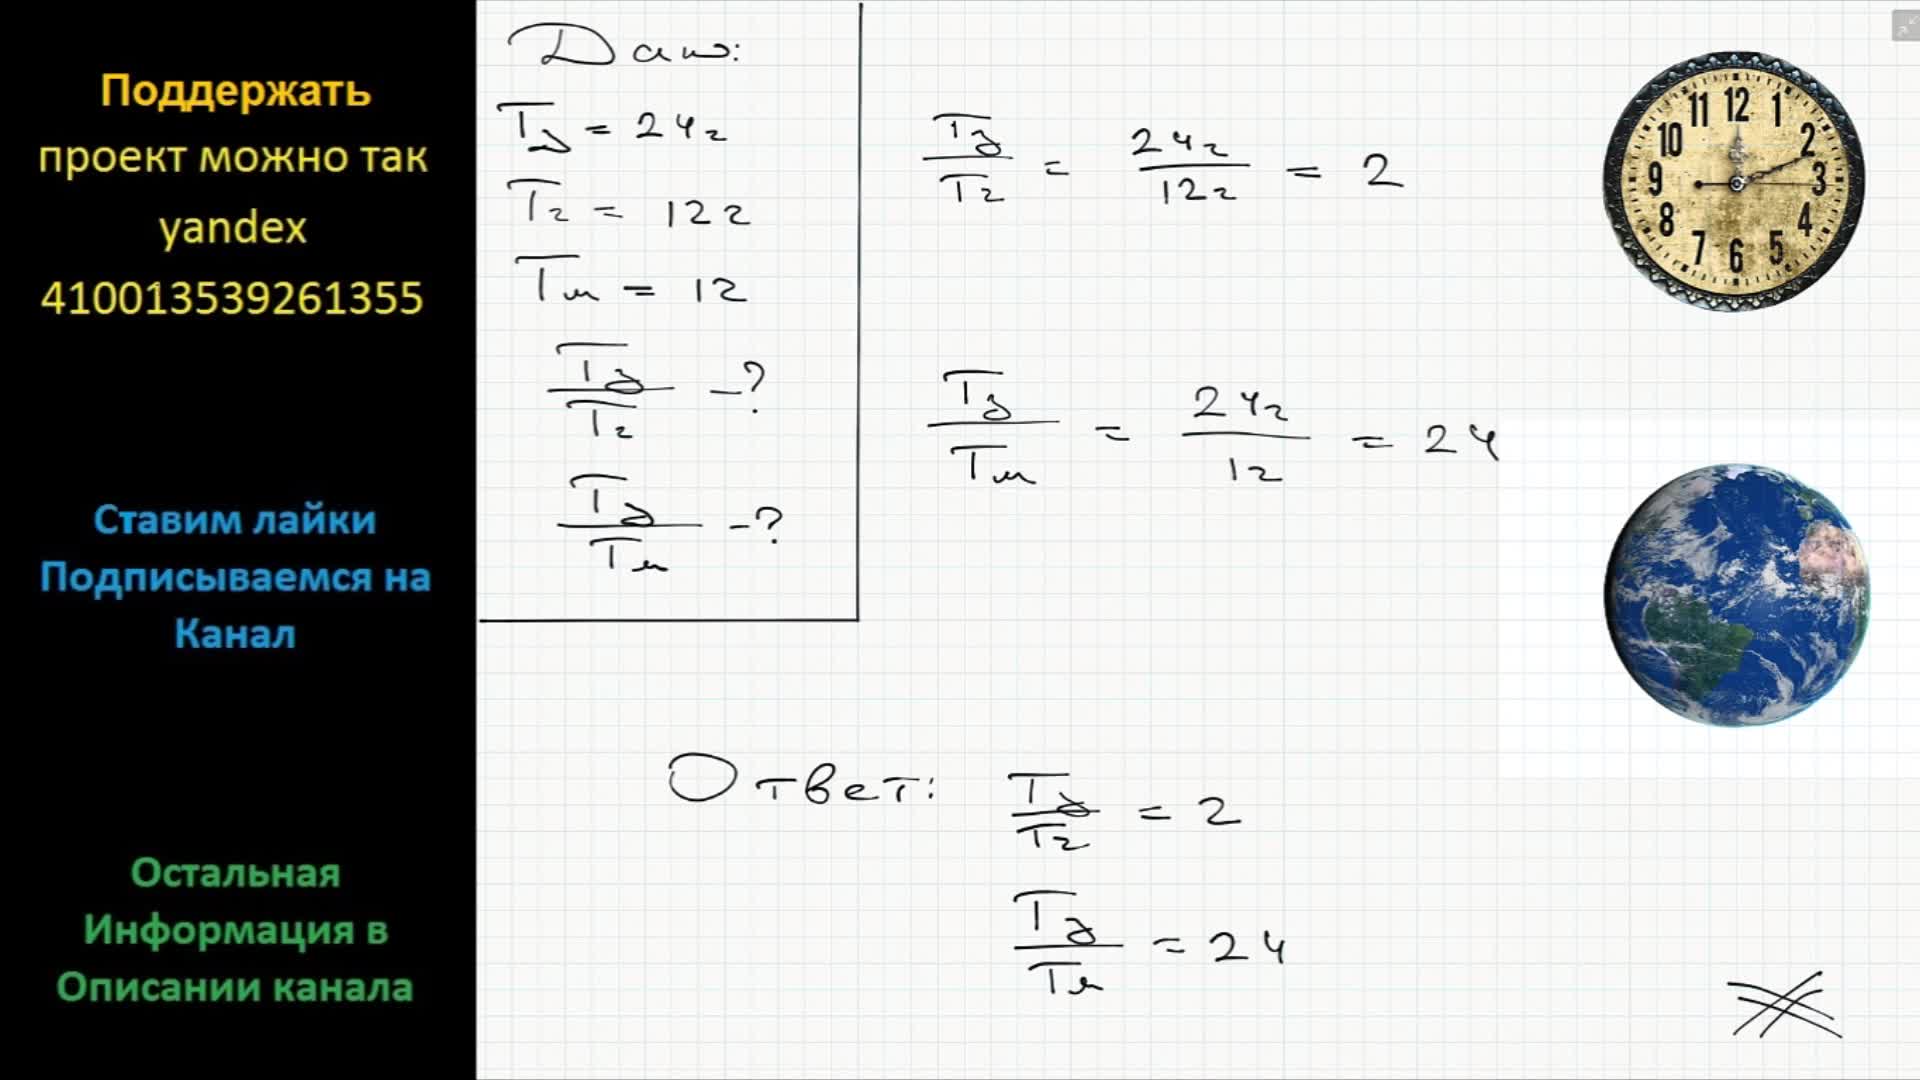 Поддержать
проект можно так
yandex
410013539261355
Ставим лайки
Подписываемся на
Канал
Остальная
Информация в
Описании канала
Дано:
Tд = 24ч
Tч = 12ч
Tм = 1ч
Tд/Tч -?
Tд/Tм -?
Tд/Tч = 24ч/12ч = 2
Tд/Tм = 24ч/1ч = 24
Ответ: Tд/Tч = 2
Tд/Tм = 24
12 1 2 3 4 5 6 7 8 9 10 11